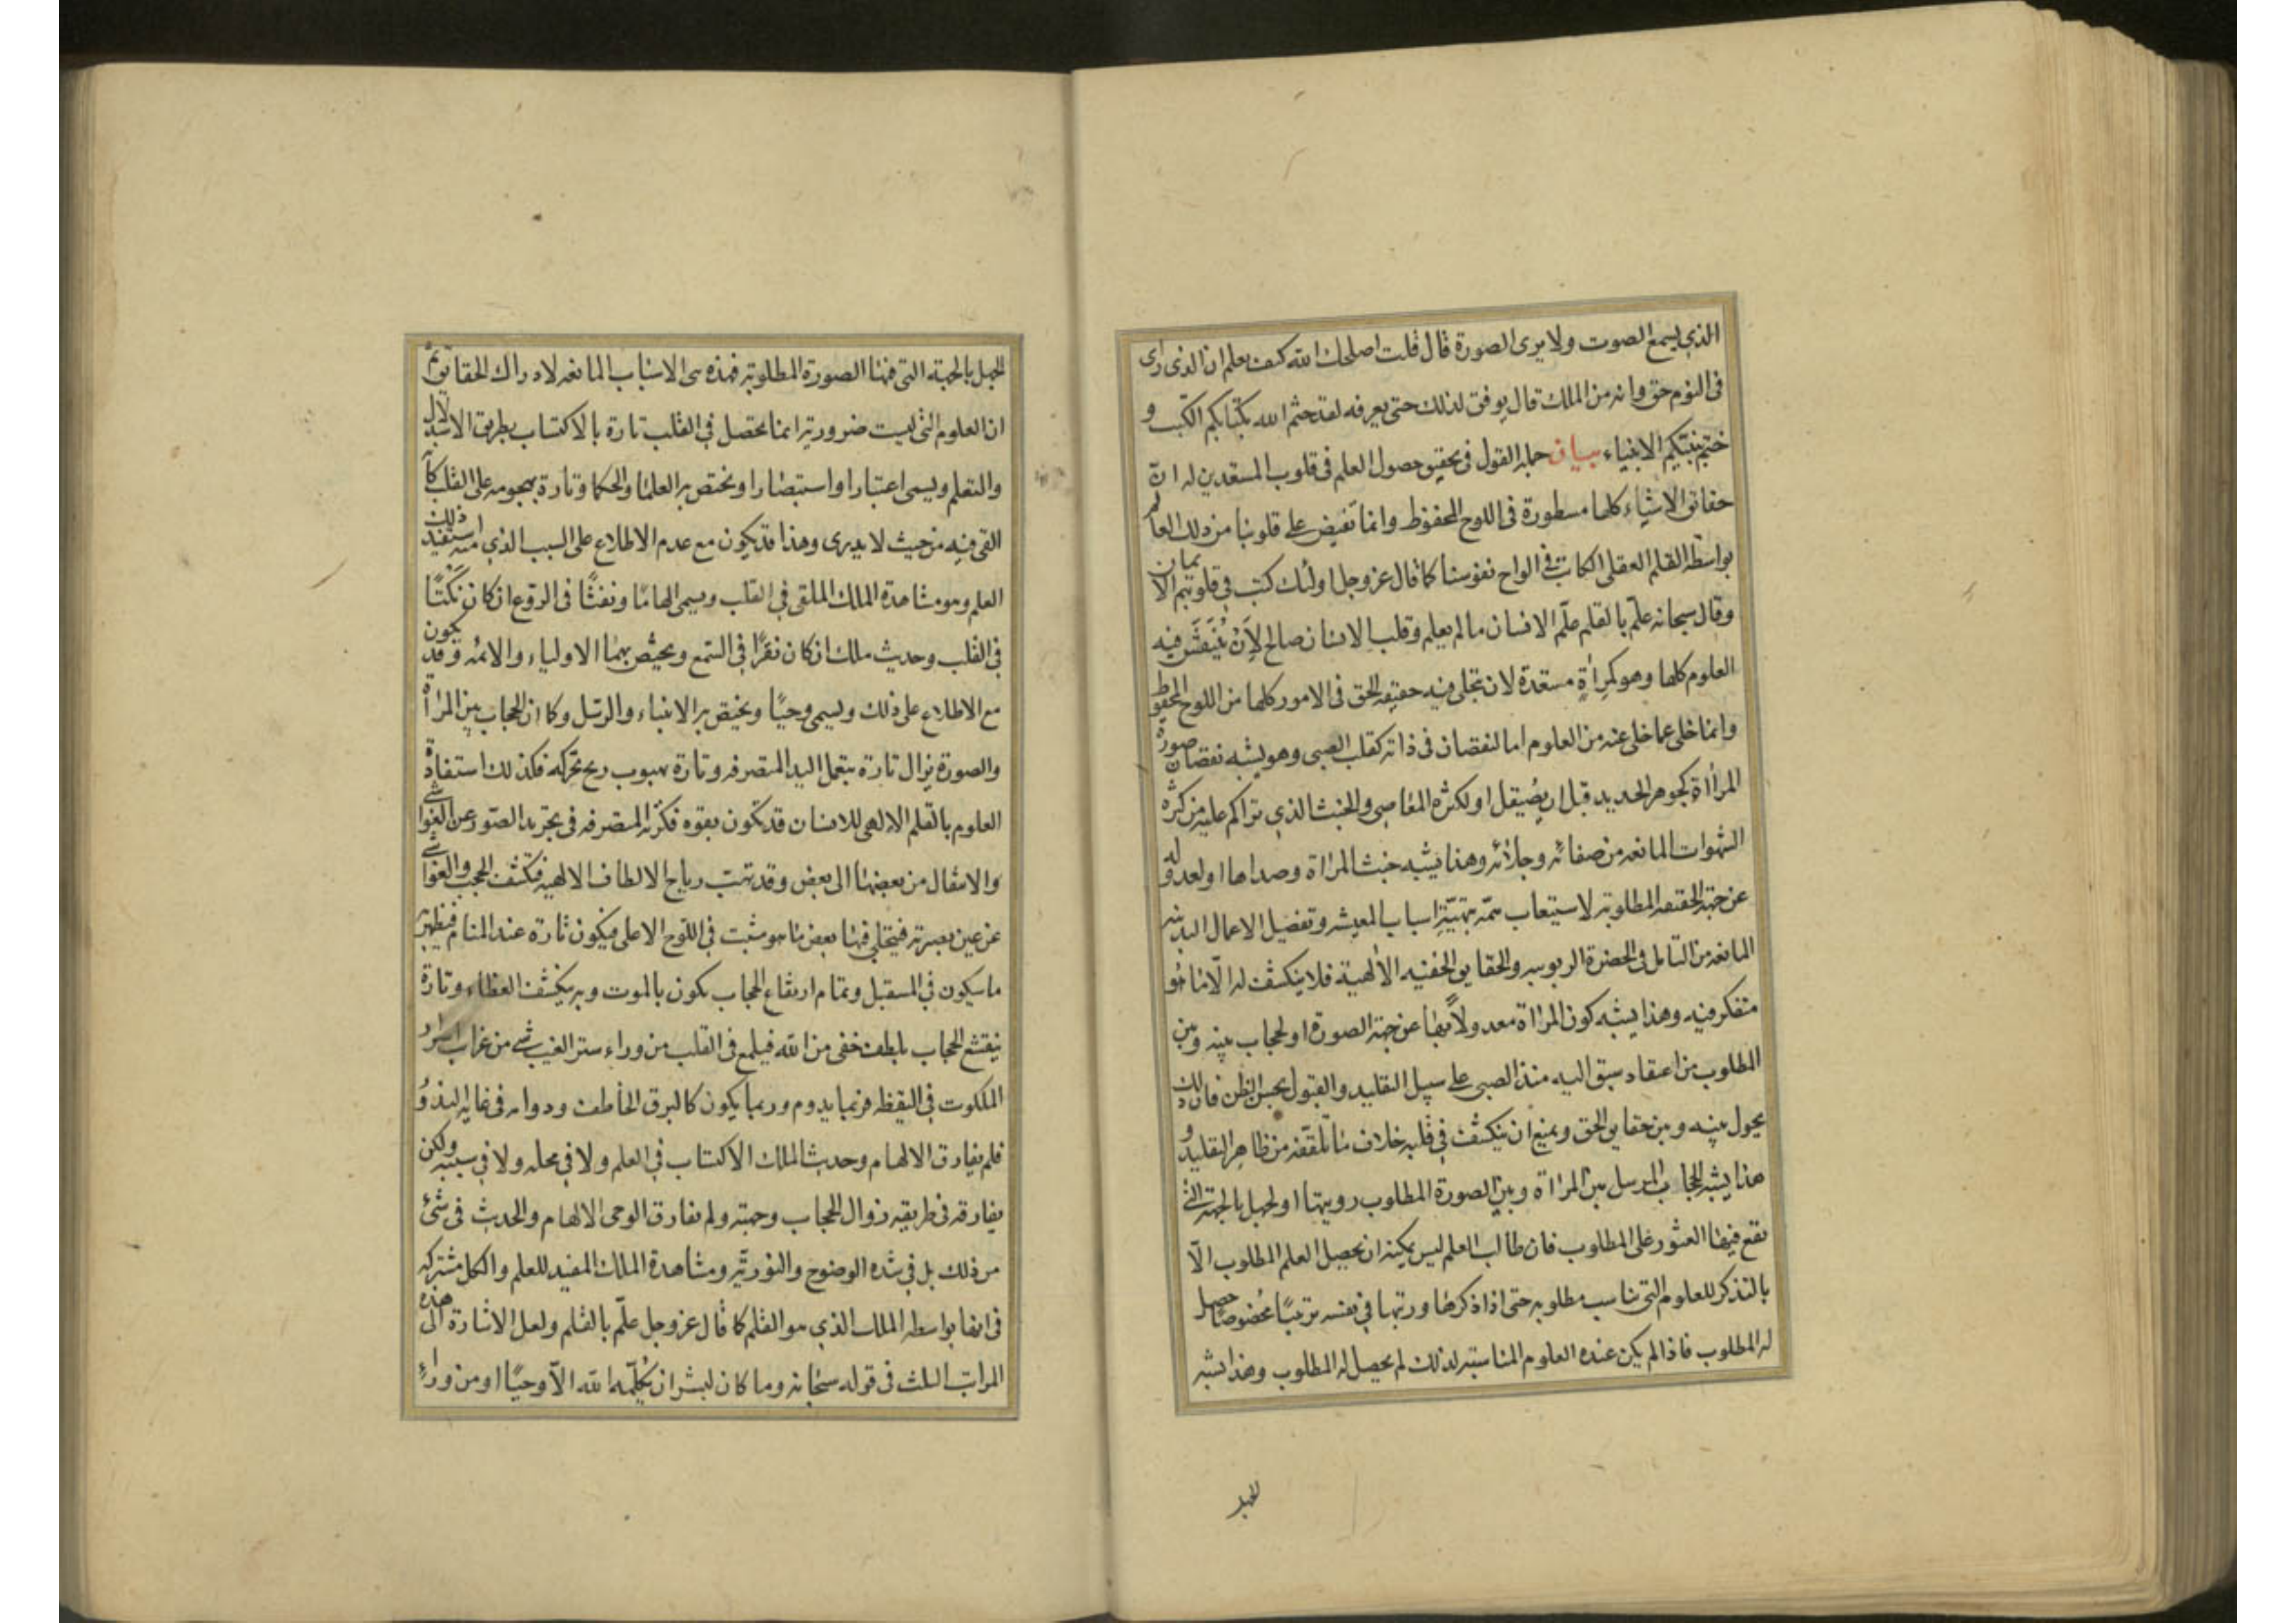 الذي يسمع الصوت ولا يرى الصورة قال قلت اصلحك الله كيف يعلم ان الذى راى
فى النوم حق وانه من الملك قال يوفق لذلك حتى يعرفه لقد ختم الله بكتابكم الكتب و
ختم بنبيكم الانبياء بيان جملة القول فى تحقيق حصول العلم فى قلوب المستعدين له ان
حقائق الاشياء كلها مسطورة فى اللوح المحفوظ وانما تفيض على قلوبنا من ذلك العالم
بواسطة القلم العقلى الكاتب فى الواح نفوسنا كما قال عز وجل اولئك كتب فى قلوبهم الايمان
وقال سبحانه علّم بالقلم علّم الانسان مالم يعلم وقلب الانسان صالح لِاَنْ يُنْتَقَشَ فيه
العلوم كلها وهو كمرآة مستعدة لان تتجلى فيه حقيقة الحق فى الامور كلها من اللوح المحفوظ
وانما خلى عما خلى عنه من العلوم اما لنقصان فى ذاته كقلب الصبى وهو يشبه نقصان صورة
المرآة كجوهر الحديد قبل ان يُصَيقل او لكثرة المعاصى والخبث الذي تراكم عليه من كثرة
الشهوات المانعة من صفائه وجلائه وهذا يشبه خبث المرآة وصداها او لعدوله
عن جهة الحقيقة المطلوبة لاستيعاب همّه بتهيّة اسباب المعيشة وتفصيل الاعمال البدنية
المانعة من التامل فى الحضرة الربوبية والحقايق الخفية الالهية فلا ينكشف له الّا ما هو
متفكر فيه وهذا يشبه كون المرآة معدولًا بها عن جهة الصورة او لحجاب بينه وبين
المطلوب من اعتقاد سبق اليه منذ الصبى على سبيل التقليد والقبول بحسن الظن فان ذلك
يحول بينه وبين حقايق الحق ويمنع ان ينكشف فى قلبه خلاف ما تلقفه من ظاهر التقليد و
هذا يشبه الحجاب المرسل بين المرآة وبين الصورة المطلوب رويتها او لجهل بالجهة التى
تقع فيها العثور على المطلوب فان طالب العلم ليس يمكنه ان يحصل العلم المطلوب الّا
بالتذكر للعلوم التى تناسب مطلوبه حتى اذا ذكرها ورتبها فى نفسه ترتيبًا مخصوصًا حصل
له المطلوب فاذا لم يكن عنده العلوم المناسبة لذلك لم يحصل له المطلوب وهذا يشبه
للجهل
للجهل بالجهة التى فيها الصورة المطلوبة فهذه هى الاسباب المانعة لادراك الحقايق ثم
ان العلوم التى ليست ضرورية انما يحصل فى القلب تارة بالاكتساب بطريق الاستدلال
والتعلم ويسمى اعتبارا واستبصارا ويختص به العلماء والحكما وتارة بهجومه على القلب كانّه
القى فيه من حيث لا يدرى وهذا قد يكون مع عدم الاطلاع على السبب الذي منه استفيد ذلك
العلم وهو مشاهدة الملك الملقى فى القلب ويسمى الهامًا ونفثًا فى الروع ان كان نَكْتًا
فى القلب وحديث ملك ان كان نقرًا فى السّمع ويختص بهما الاولياء والائمة وقد يكون
مع الاطلاع على ذلك ويسمى وحيًا ويختص به الانبياء والرسل وكما ان الحجاب بين المرآة
والصورة يزال تارة بتعمل اليد المتصرفة وتارة بهبوب ريح تحركه فكذلك استفادة
العلوم بالقلم الالهى للانسان قد تكون بقوة فكرته المتصرفة فى تجريد الصّور عن الغواشى
والانتقال من بعضها الى بعض وقد تهبّ رياح الالطاف الالهية فتكشف الحجب والغواشى
عن عين بصيرته فيتجلى فيها بعض ما هو مثبت فى اللوح الاعلى فيكون تارة عند المنام فيظهر به
ما سيكون فى المستقبل وتمام ارتفاع الحجاب يكون بالموت وبه ينكشف الغطاء وتارة
ينقشع الحجاب بلطف خفى من الله فيلمع فى القلب من وراء ستر الغيب شى من غرايب اسرار
الملكوت فى اليقظة فربما يدوم وربما يكون كالبرق الخاطف ودوامه فى غاية الندو
فلم يفارق الالهام وحديث الملك الاكتساب فى العلم ولا فى محله ولا فى سببه ولكن
يفارقه فى طريقة زوال الحجاب وجهته ولم يفارق الوحى الالهام والحديث فى شئ
من ذلك بل فى شدة الوضوح والنورية ومشاهدة الملك المفيد للعلم والكل مشتركة
فى انها بواسطة الملك الذي هو القلم كما قال عز وجل علّم بالقلم ولعل الاشارة الى هذه
المراتب الثلث فى قوله سبحانه وما كان لبشر ان يُكلّمه الله الّا وحيًا او من وراءِ